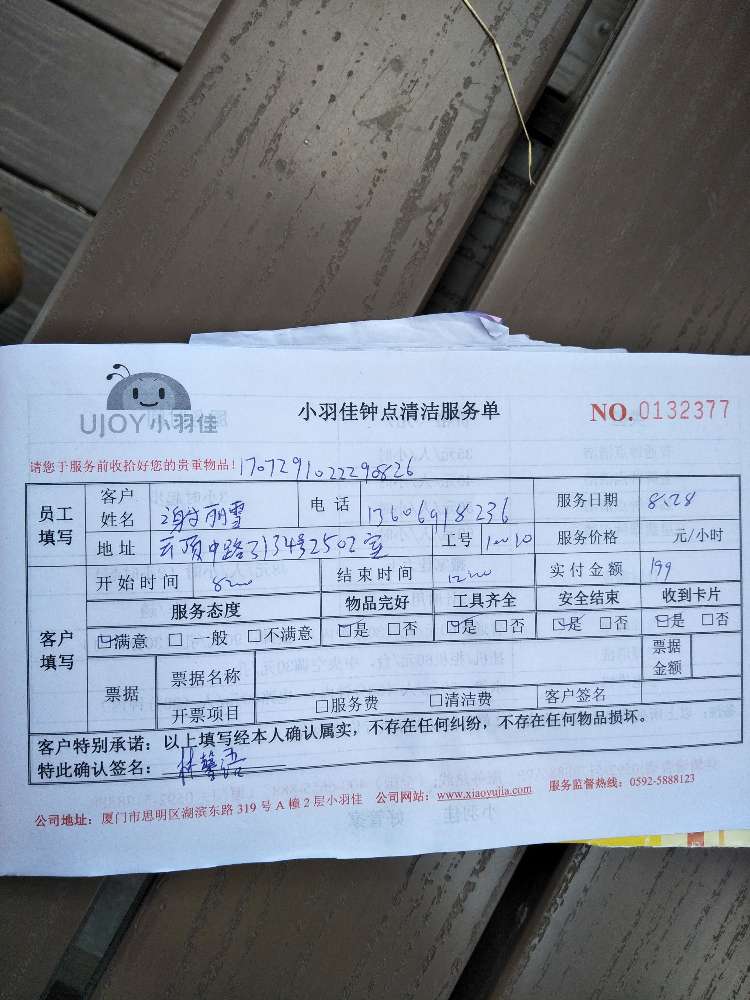 UJOY小羽佳
小羽佳钟点清洁服务单
NO. 0132377
请您于服务前收拾好您的贵重物品！1707291022290826
员工填写 客户姓名 谢丽雪 电话 13606918236 服务日期 8.28
地址 云顶中路3134号2502室 工号 服务价格 元/小时
客户填写 开始时间 8:00 结束时间 12:00 实付金额 199
服务态度 物品完好 工具齐全 安全结束 收到卡片
☑满意 □一般 □不满意 ☑是 □否 ☑是 □否 ☑是 □否 ☑是 □否
票据 票据名称 票据金额
开票项目 □服务费 □清洁费 客户签名
客户特别承诺：以上填写经本人确认属实，不存在任何纠纷，不存在任何物品损坏。
特此确认签名：林馨语
公司地址：厦门市思明区湖滨东路319号A幢2层小羽佳 公司网站：www.xiaoyujia.com 服务监督热线：0592-5888123